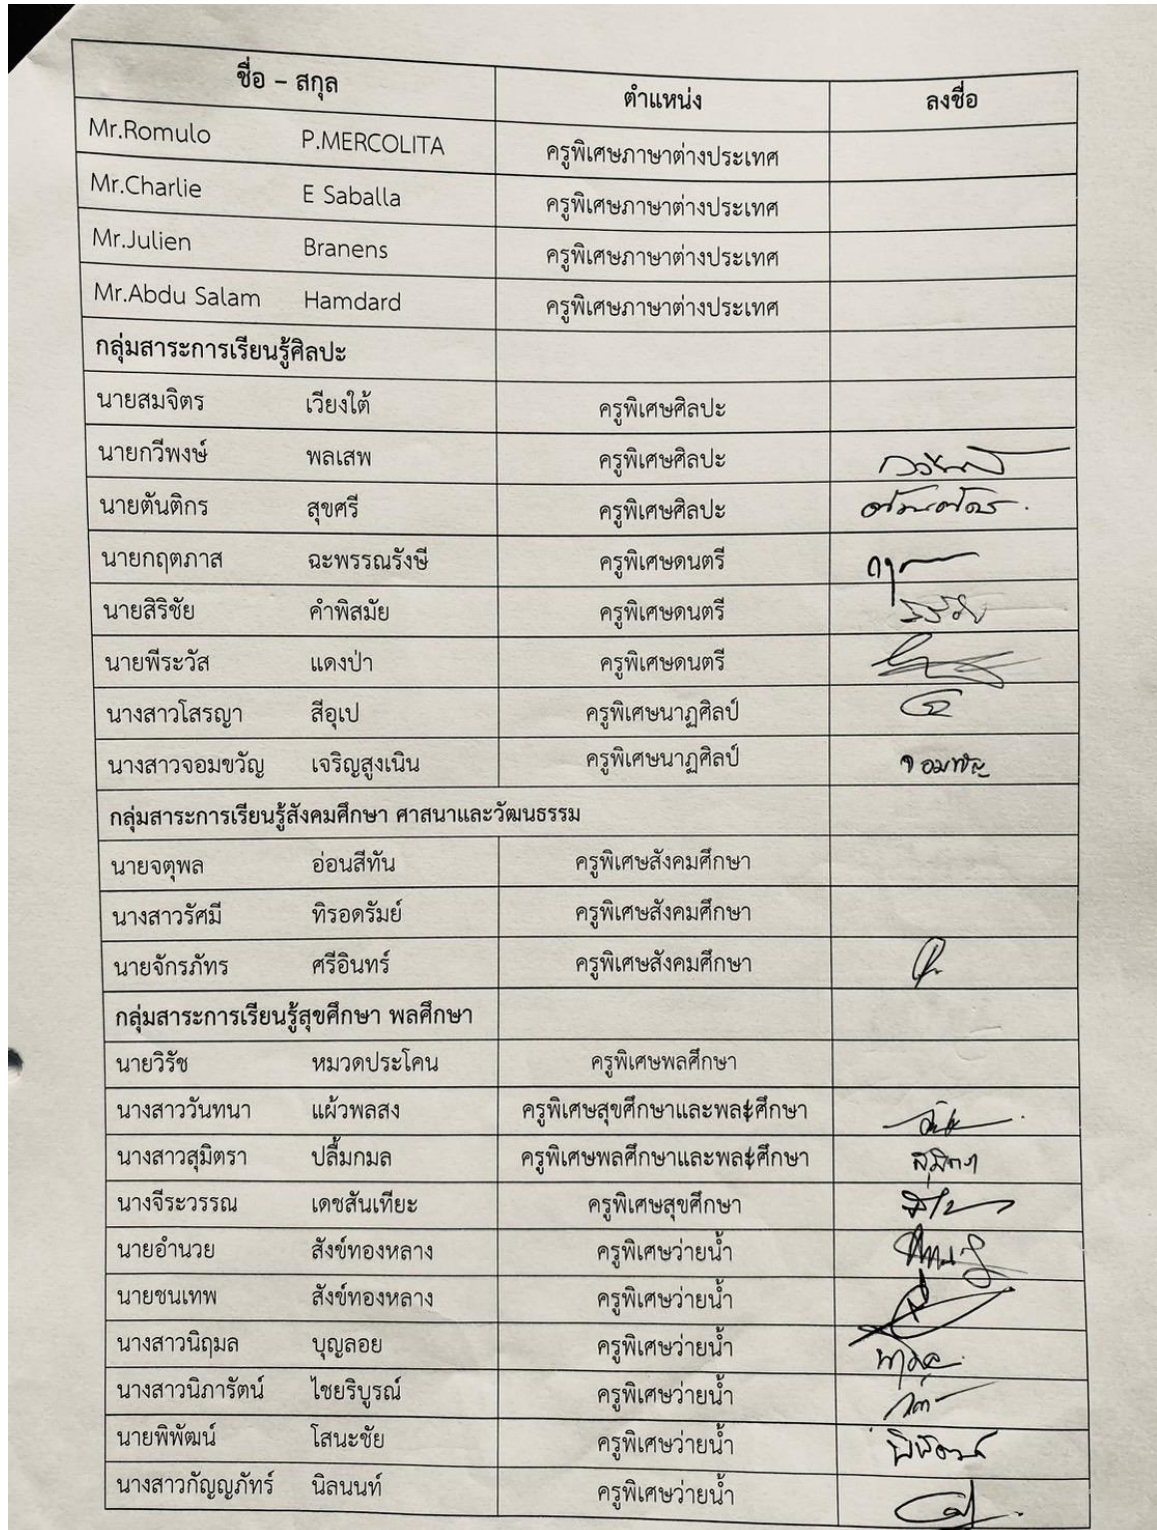 ชื่อ – สกุล ตำแหน่ง ลงชื่อ
Mr.Romulo P.MERCOLITA ครูพิเศษภาษาต่างประเทศ
Mr.Charlie E Saballa ครูพิเศษภาษาต่างประเทศ
Mr.Julien Branens ครูพิเศษภาษาต่างประเทศ
Mr.Abdu Salam Hamdard ครูพิเศษภาษาต่างประเทศ
กลุ่มสาระการเรียนรู้ศิลปะ
นายสมจิตร เวียงใต้ ครูพิเศษศิลปะ
นายกวีพงษ์ พลเสพ ครูพิเศษศิลปะ
นายตันติกร สุขศรี ครูพิเศษศิลปะ
นายกฤตภาส ฉะพรรณรังษี ครูพิเศษดนตรี
นายสิริชัย คำพิสมัย ครูพิเศษดนตรี
นายพีระวัส แดงป่า ครูพิเศษดนตรี
นางสาวโสรญา สีอุเป ครูพิเศษนาฏศิลป์
นางสาวจอมขวัญ เจริญสูงเนิน ครูพิเศษนาฏศิลป์ จอมขวัญ
กลุ่มสาระการเรียนรู้สังคมศึกษา ศาสนาและวัฒนธรรม
นายจตุพล อ่อนสีทัน ครูพิเศษสังคมศึกษา
นางสาวรัศมี ทิรอดรัมย์ ครูพิเศษสังคมศึกษา
นายจักรภัทร ศรีอินทร์ ครูพิเศษสังคมศึกษา
กลุ่มสาระการเรียนรู้สุขศึกษา พลศึกษา
นายวิรัช หมวดประโคน ครูพิเศษพลศึกษา
นางสาววันทนา แผ้วพลสง ครูพิเศษสุขศึกษาและพละศึกษา
นางสาวสุมิตรา ปลื้มกมล ครูพิเศษพลศึกษาและพละศึกษา สุมิตรา
นางจีระวรรณ เดชสันเทียะ ครูพิเศษสุขศึกษา
นายอำนวย สังข์ทองหลาง ครูพิเศษว่ายน้ำ
นายชนเทพ สังข์ทองหลาง ครูพิเศษว่ายน้ำ
นางสาวนิฤมล บุญลอย ครูพิเศษว่ายน้ำ
นางสาวนิภารัตน์ ไชยริบูรณ์ ครูพิเศษว่ายน้ำ
นายพิพัฒน์ โสนะชัย ครูพิเศษว่ายน้ำ พิพัฒน์
นางสาวกัญญภัทร์ นิลนนท์ ครูพิเศษว่ายน้ำ